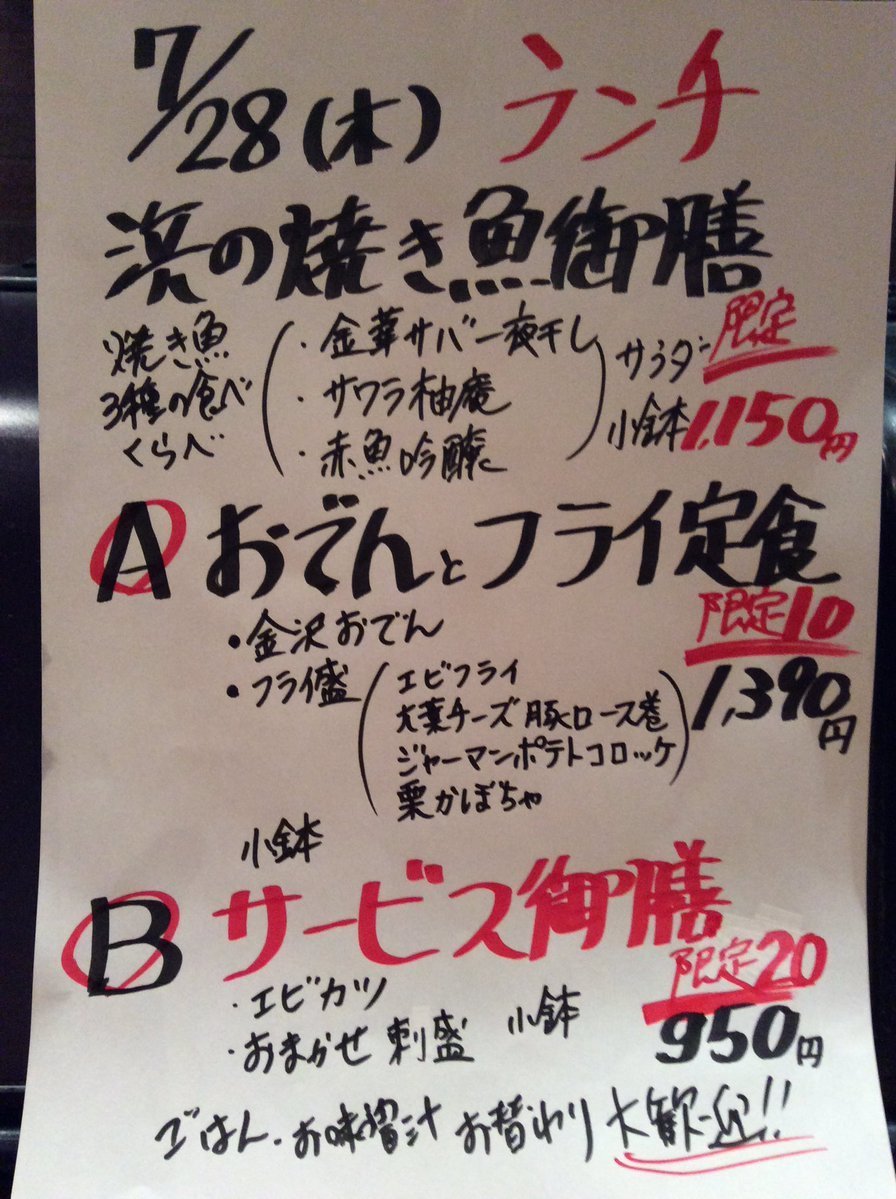 7/28(木) ランチ
浜の焼き魚御膳
限定
焼き魚
3種の食べ
くらべ
・金華サバ一夜干し
・サワラ柚庵
・赤魚吟醸
サラダ
小鉢
1,150円
A おでんとフライ定食
限定10
1,390円
・金沢おでん
・フライ盛
エビフライ
大葉チーズ豚ロース巻
ジャーマンポテトコロッケ
栗かぼちゃ
小鉢
B サービス御膳
限定20
950円
・エビカツ
・おまかせ刺盛 小鉢
ごはん・お味噌汁 お替わり 大歓迎!!